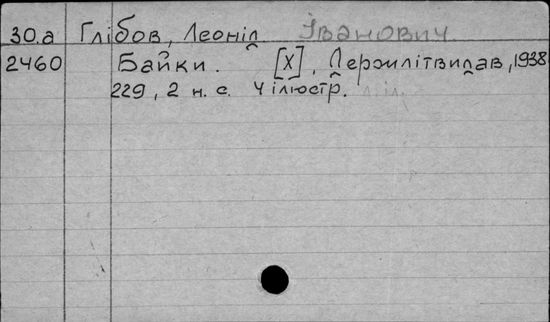 30.а Глібов, Леонід Іванович.
2460 Байки. [Х], Держлітвидав, 1938
229, 2 н. с. 4 ілюстр.